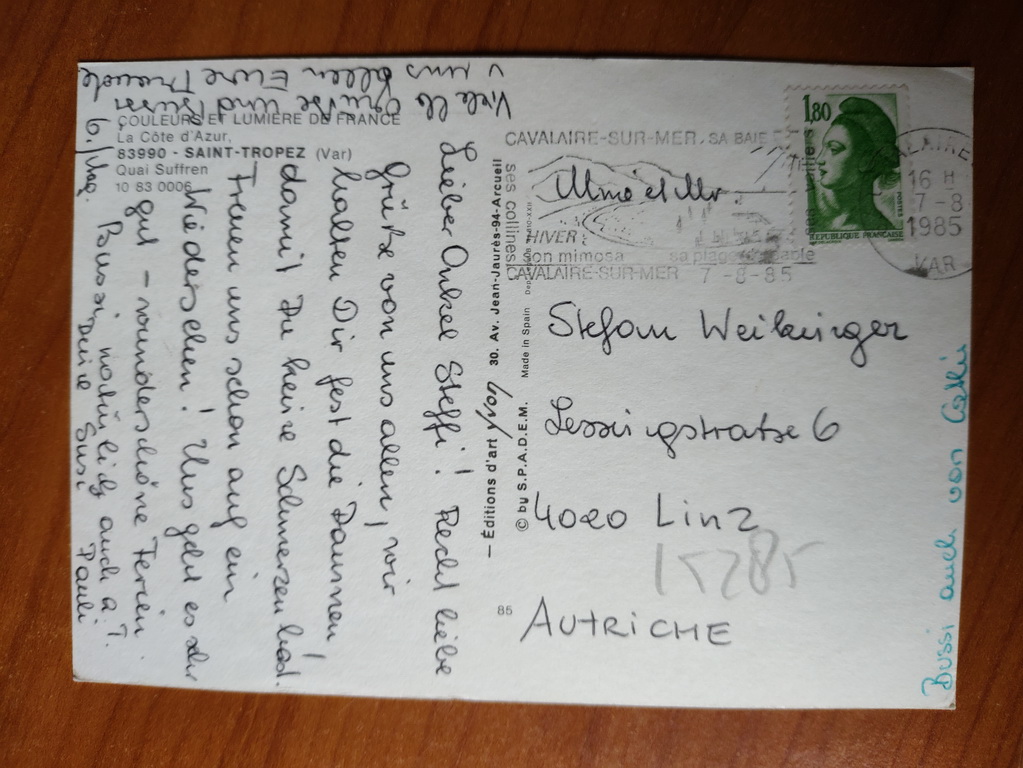 COULEURS ET LUMIÈRE DE FRANCE
La Côte d'Azur,
83990 - SAINT-TROPEZ (Var)
Quai Suffren
10 83 0006
6./Aug.
Lieber Onkel Steffi! Recht liebe
Grüße von uns allen, wir
halten Dir fest die Daumen,
damit Du keine Schmerzen hast!
Freuen uns schon auf ein
Wiedersehen! Uns geht es sehr
gut - wunderschöne Ferien.
Bussi, natürlich auch a. T.
Deine Susi Pauli
Viele ll. Grüße und Bussi
v. uns allen Eure Traude
— Éditions d'art yvon 30. Av. Jean-Jaurès-94-Arcueil
© by S.P.A.D.E.M. Made in Spain
85
CAVALAIRE-SUR-MER, SA BAIE
ses collines
HIVER:
son mimosa sa plage
CAVALAIRE-SUR-MER 7-8-85
1,80
POSTES
REPUBLIQUE FRANÇAISE
CAVALAIRE
16 H
7-8
1985
VAR
Mme et Mr
Stefan Weilninger
Lessingstraße 6
4020 Linz
15285
AUTRICHE
Bussi auch von